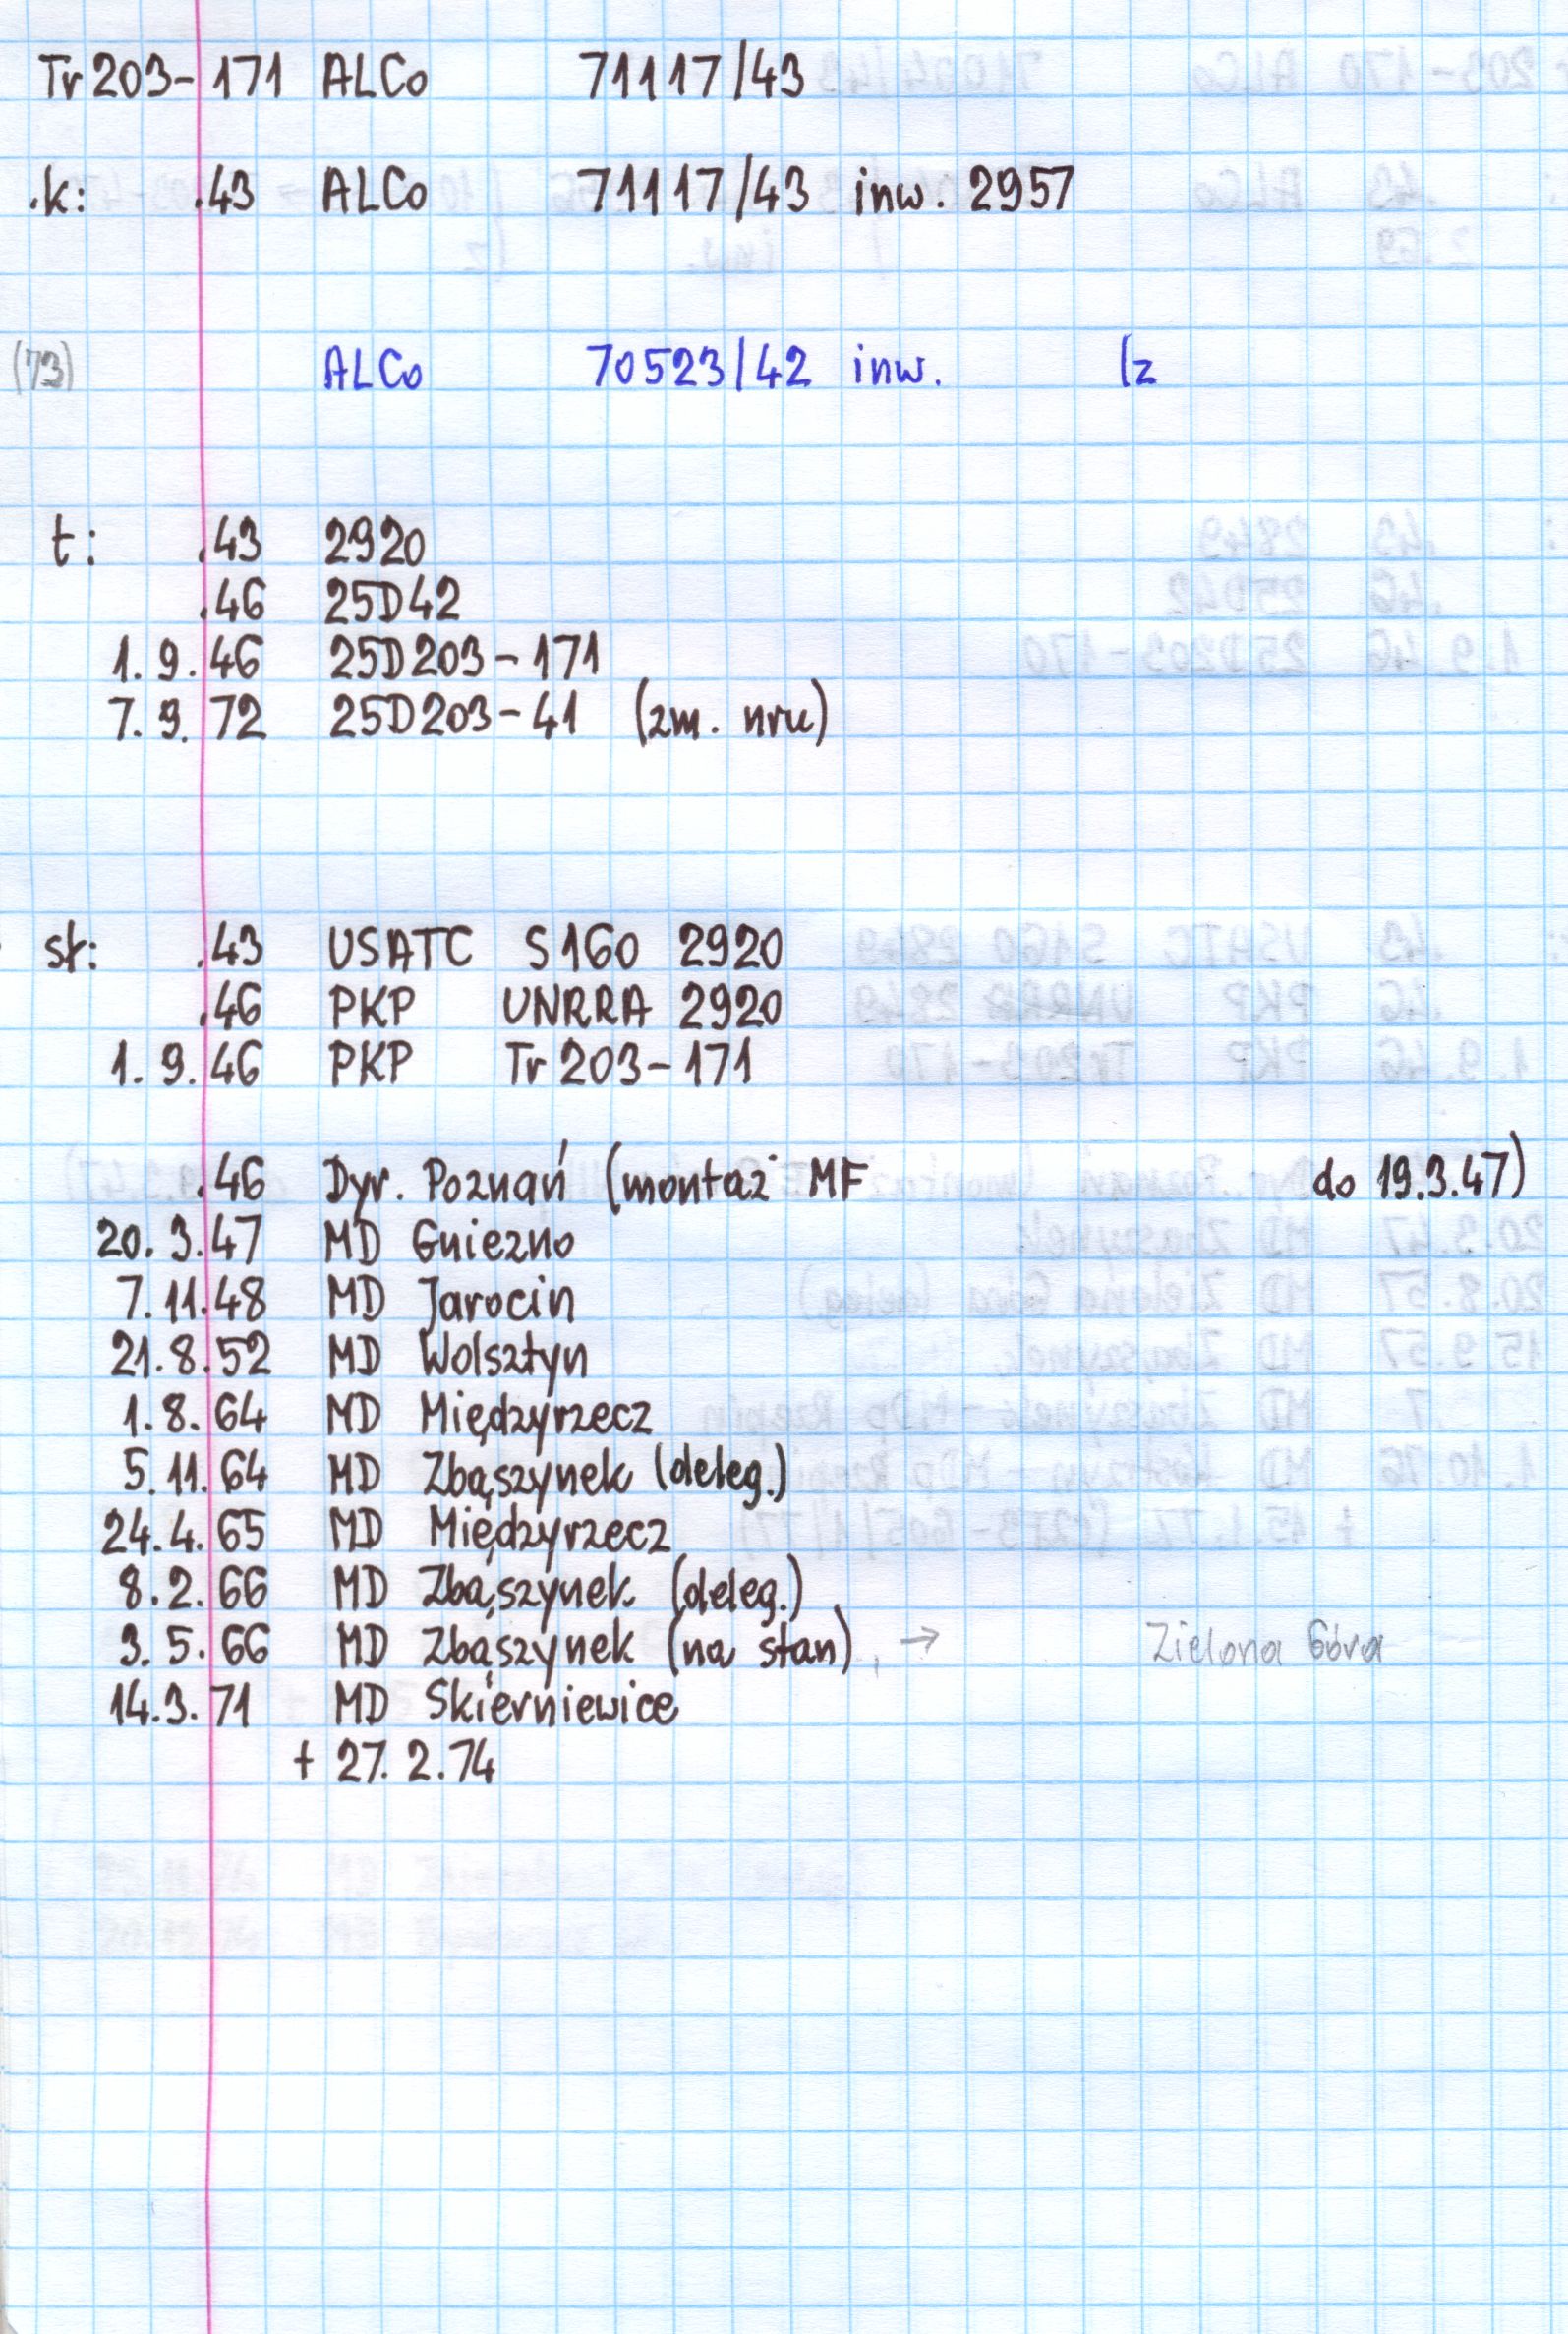 Tr 203-171 ALCo 71117/43
.k: .43 ALCo 71117/43 inw. 2957
(73) ALCo 70523/42 inw. (z
t: .43 2920
.46 25D42
1. 9. 46 25D203-171
7. 9. 72 25D203-41 (zm. nru)
st: .43 USATC S160 2920
.46 PKP UNRRA 2920
1. 9. 46 PKP Tr 203-171
.46 Dyr. Poznań (montaż MF do 19.3.47)
20. 3. 47 MD Gniezno
7. 11. 48 MD Jarocin
21. 8. 52 MD Wolsztyn
1. 8. 64 MD Międzyrzecz
5. 11. 64 MD Zbąszynek (deleg.)
24. 4. 65 MD Międzyrzecz
8. 2. 66 MD Zbąszynek (deleg.)
3. 5. 66 MD Zbąszynek (na stan), → Zielona Góra
14. 3. 71 MD Skierniewice
+ 27. 2. 74